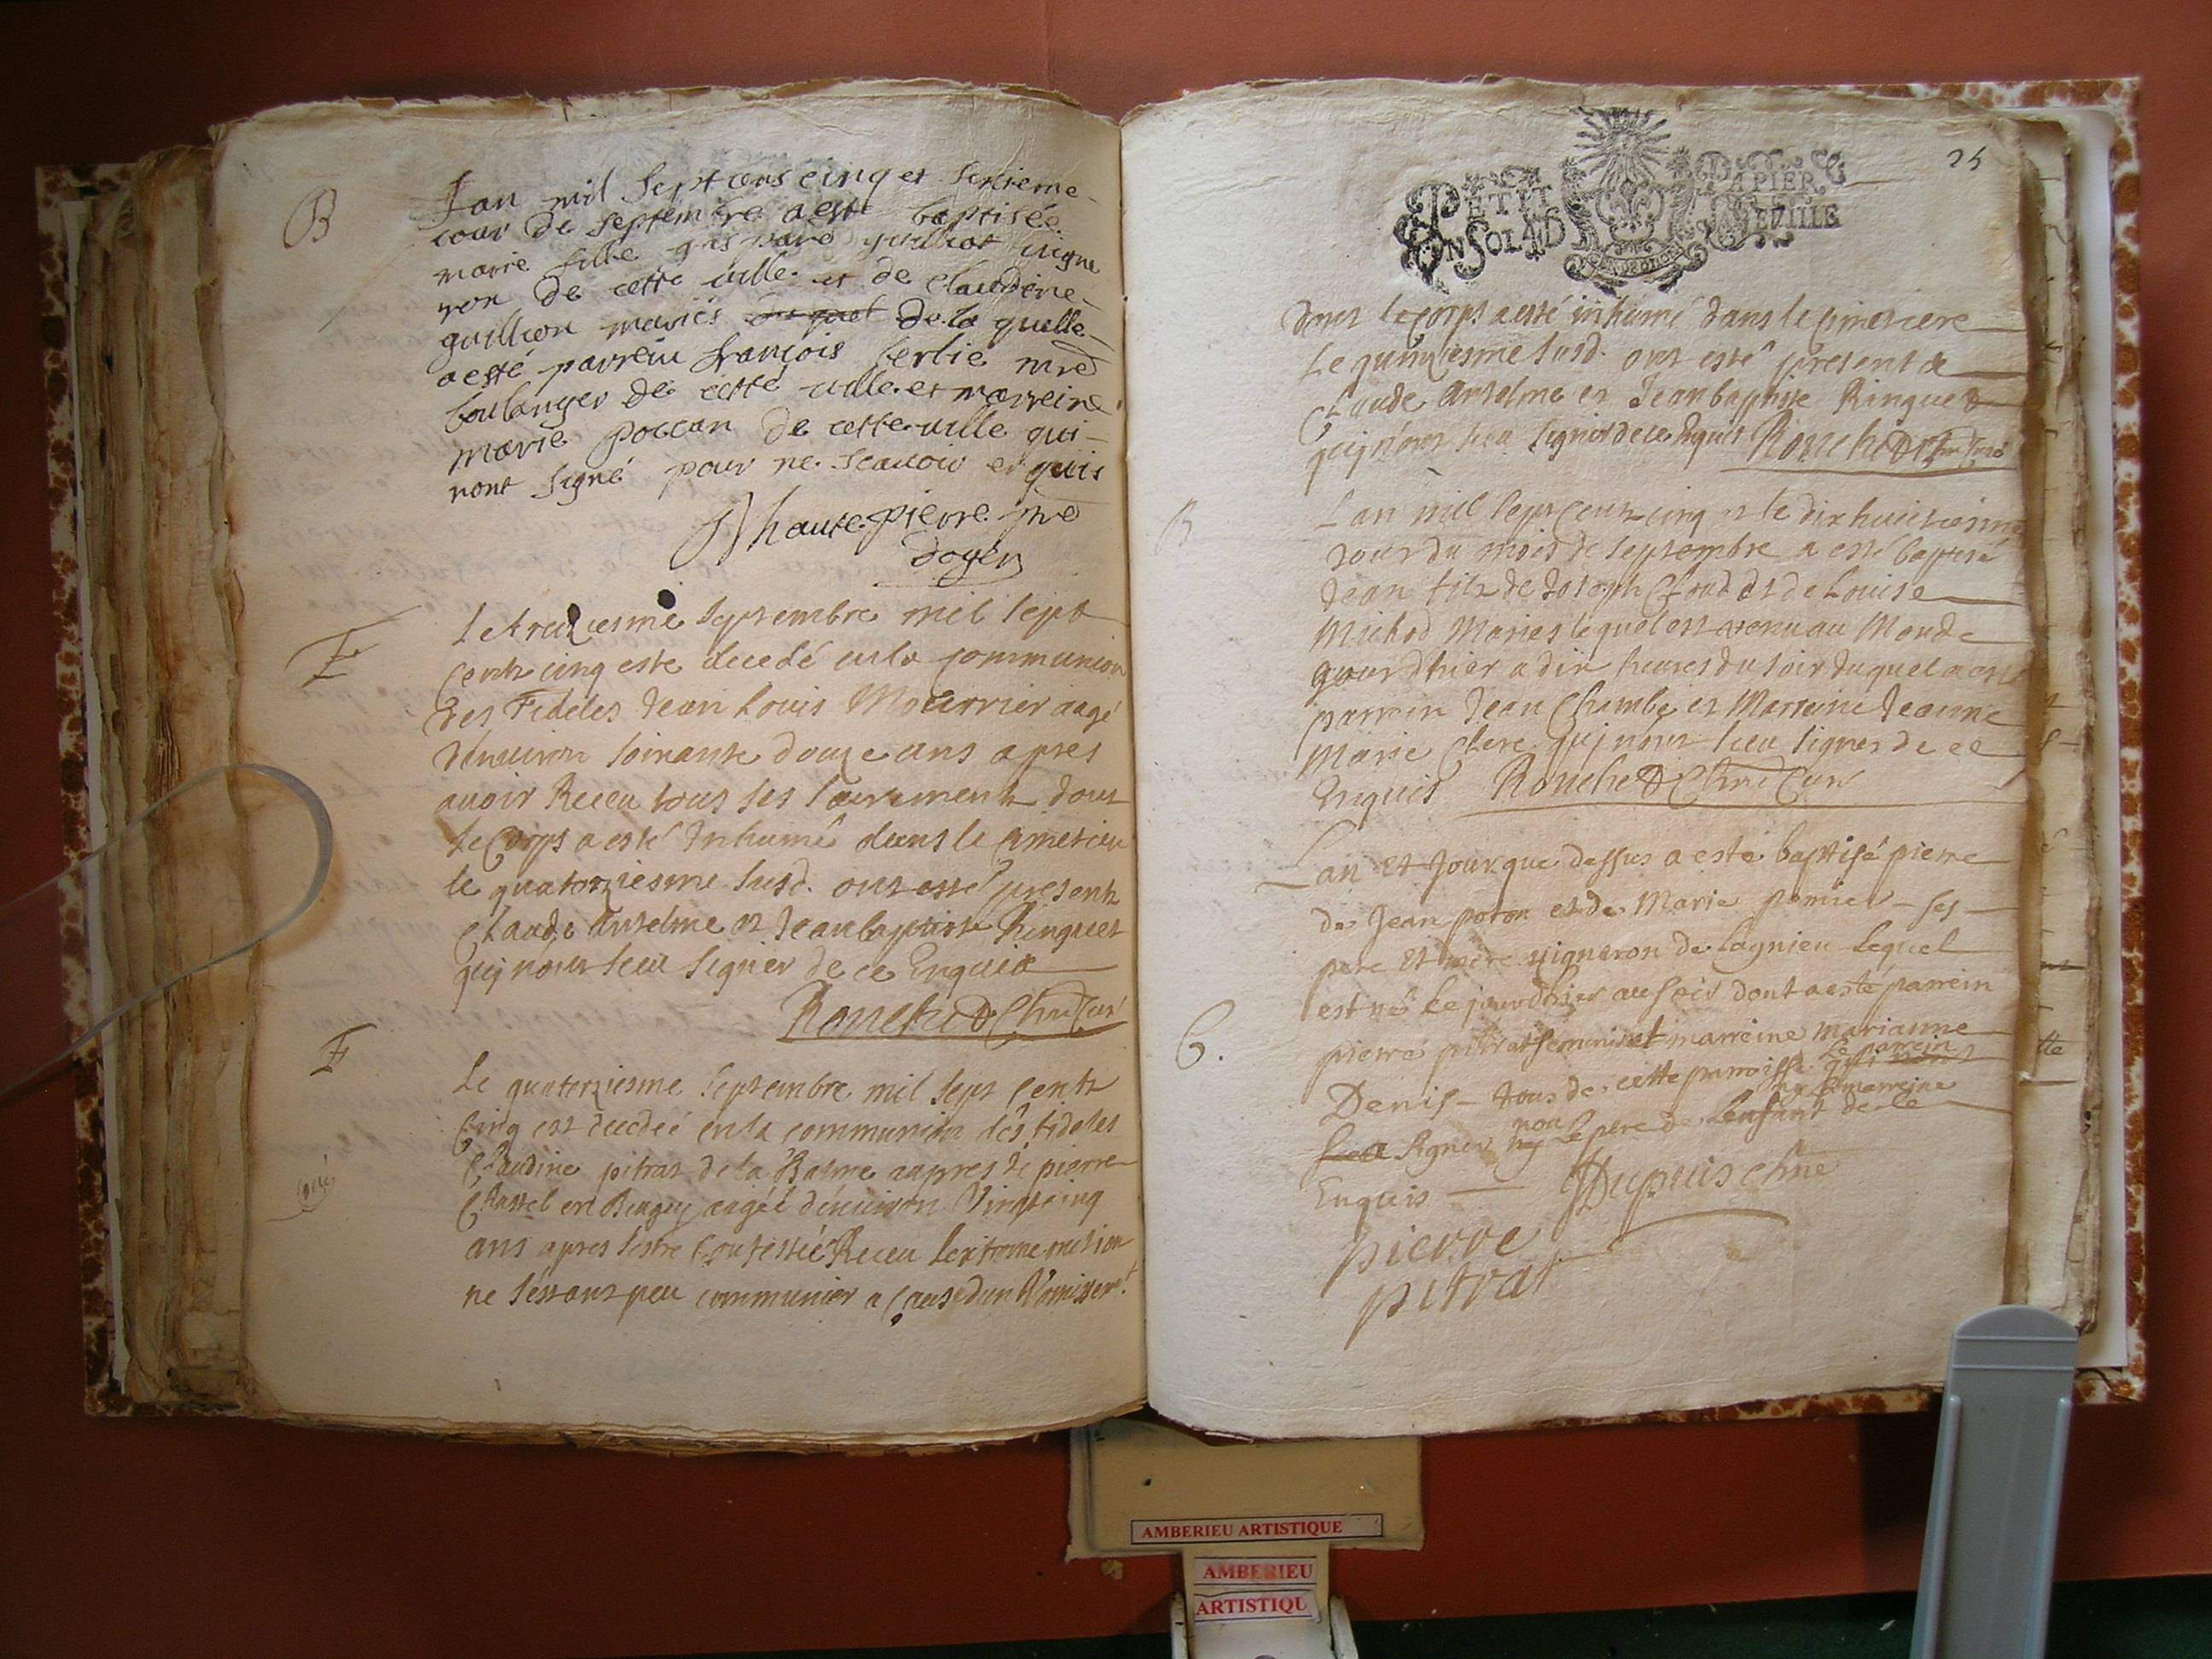 B
Lan mil Sept cens cinq et seixieme
iour de septembre a esté baptisée
marie fille gaspard guilliot vigne
ron de cette ville et de claudine
guillion mariés duquel de la quelle
a esté parrein françois
boulanger de cette ville et marreine
marie poccan de cette ville qui
nont signé pour ne scavoir enquis
haute pierre
doyen
F
le treiziesme septembre mil sept
cents cinq este decedé en la communion
des Fideles Jean Louis Mourrier aagé
denuiron soixante douze ans apres
auoir Receu tous ses sacrements dont
le Corps a esté Inhumé dans le cimetiere
le quatorziesme susd. ont esté presents
Claude Anselme et Jean baptiste Ringuet
quj nont sceu signer de ce Enquis
Rouched Curé
F
Le quatorziesme septembre mil sept cents
Cinq est decedée en la communion des fideles
Claudine pitrat de la Balme aupres de pierre
Chastel en Beugey aagée denuiron Vingtcinq
ans apres sestre Confessée Receu lextreme onction
ne sestant peu communier a cause dun Vomissemt
25
PETIT PAPIER
dont le corps a esté inhumé dans le cimetiere
le quinziesme susd. ont esté present
Claude Anselme et Jean baptiste Ringuet
quj nont sceu signer de ce Enquis Rouched Curé
B
Lan mil sept cents cinq et le dix huictiesme
Jour du mois de septembre a esté baptisé
Jean filz de Joseph et de Louise
Michod Maries lequel est venu au Monde
jourdhier a dix heures du soir duquel a esté
parrein Jean Chambe et Marreine Jeanne
Marie Clerc quj nont sceu signer de ce
Enquis Rouched Curé
Lan et Jour que dessus a esté baptisé pierre
de Jean poton et de Marie pomier ses
pere et mere vigneron de Lagnieu lequel
est né le jourdhier au soir dont a esté parrein
B.
pierre pitrat et marreine marianne
Denis tous de cette paroisse qui le parrein
ny la marreine
sceu signer non ny le pere de lenfant de ce
Enquis Dupuis
pierre
pitrat
AMBERIEU ARTISTIQUE
AMBERIEU
ARTISTIQU